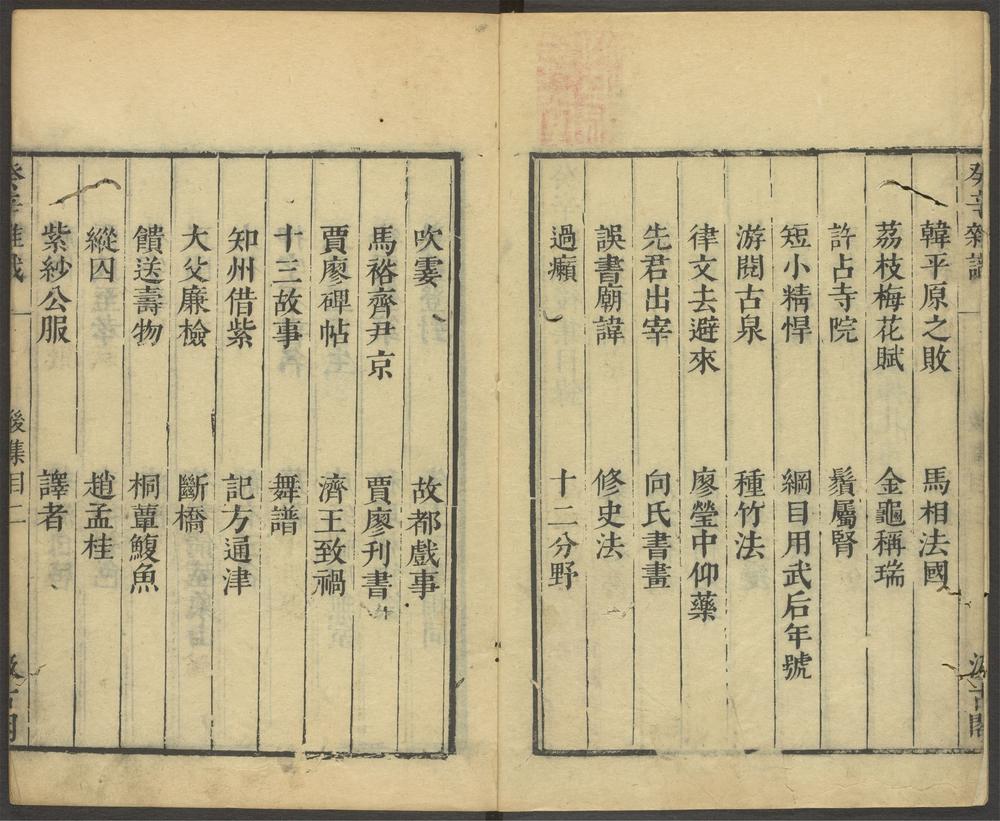 癸辛雜識
一
汲古閣
韓平原之敗　馬相法國
荔枝梅花賦　金龜稱瑞
許占寺院　鬚屬腎
短小精悍　綱目用武后年號
游閱古泉　種竹法
律文去避來　廖瑩中仰藥
先君出宰　向氏書畫
誤書廟諱　修史法
過癩　十二分野
吹霎　故都戲事
馬裕齊尹京　賈廖刊書
賈廖碑帖　濟王致禍
十三故事　舞譜
知州借紫　記方通津
大父廉檢　斷橋
饋送壽物　桐蕈鰒魚
縱囚　趙孟桂
紫紗公服　譯者
癸辛雜識
後集目二
汲古閣